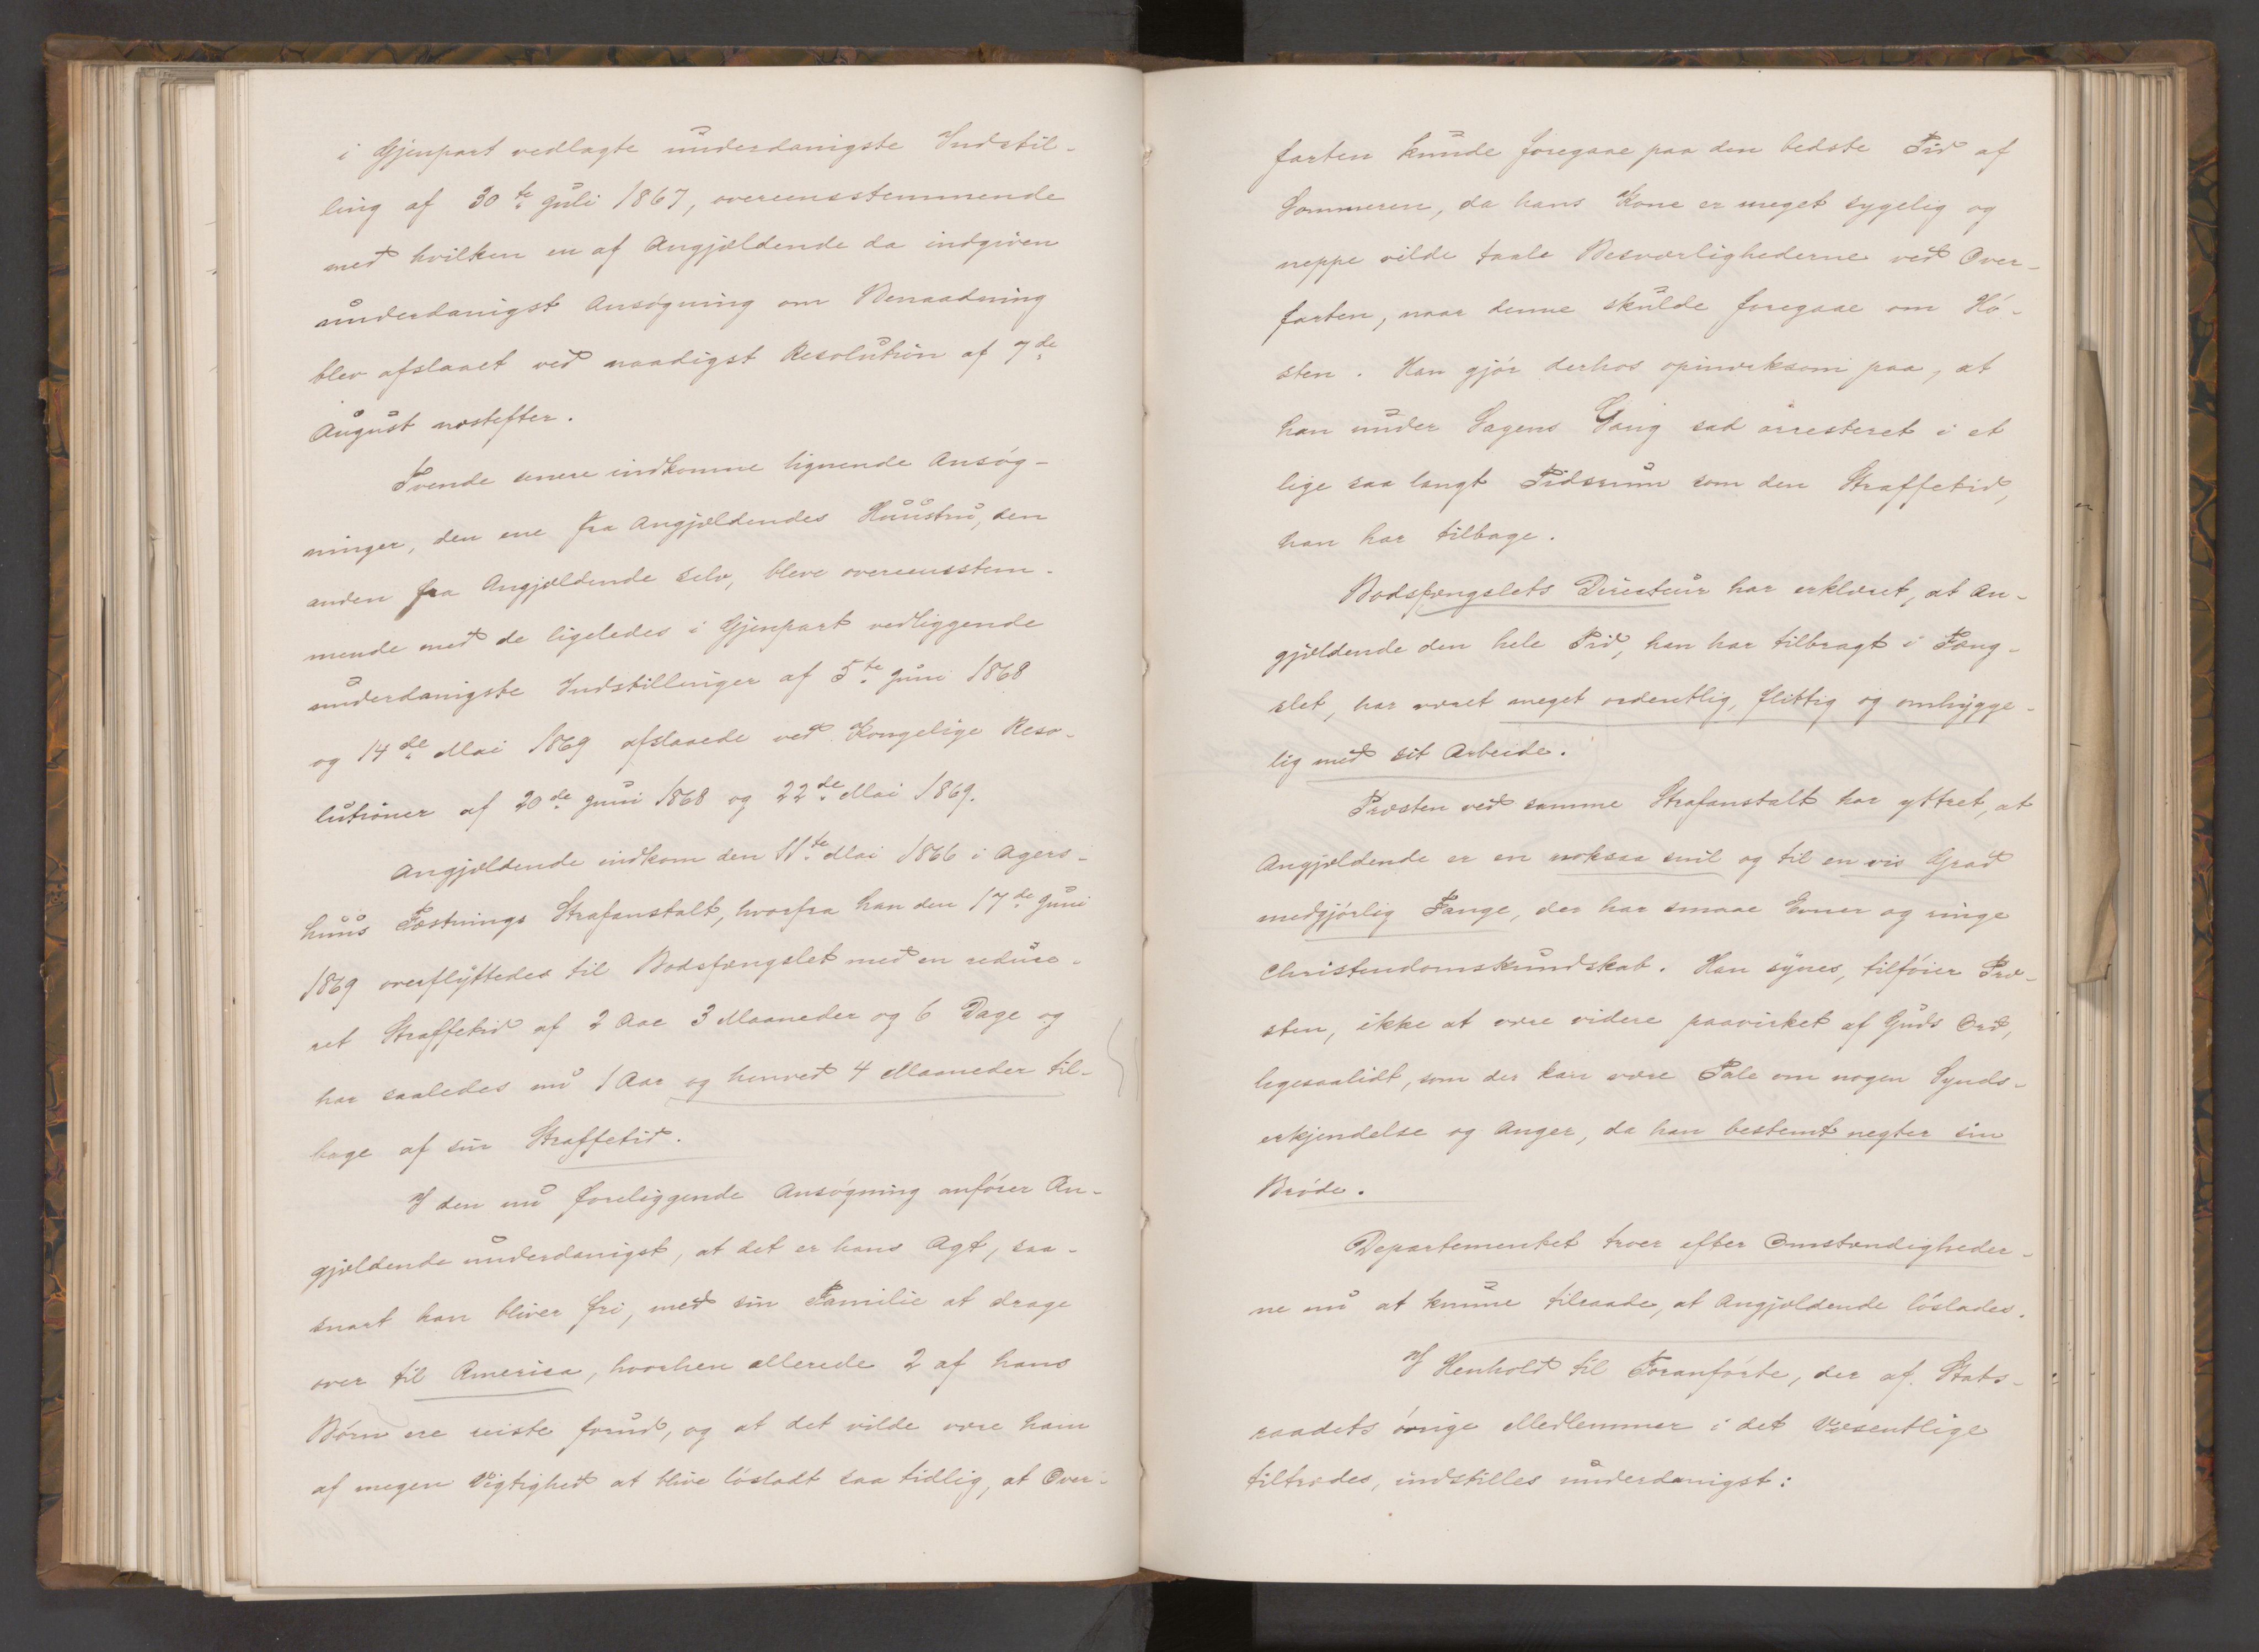 i Gjenpart vedlagte underdanigste Indstil-
ling af 30te Juli 1867, overeensstemmende
med hvilken en af Angjældende da indgiven
underdanigst Ansøgning om Benaadning
blev afslaaet ved naadigst Resolution af 7de
August næstefter.
Tvende senere indkomne lignende Ansøg-
ninger, den ene fra Angjældendes Huustru, den
anden fra Angjældende selv, bleve overeensstem-
mende med de ligeledes i Gjenpart vedliggende
underdanigste Indstillinger af 5te Juni 1868
og 14de Mai 1869 afslaaede ved Kongelige Reso-
lutioner af 20de Juni 1868 og 22de Mai 1869.
Angjældende indkom den 11te Mai 1866 i Agers-
huus Fæstnings Strafanstalt, hvorfra han den 17de Juni
1869 overflyttedes til Bodsfængslet med en reduce-
ret Straffetid af 2 Aar 3 Maaneder og 6 Dage og
har saaledes nu 1 Aar og henved 4 Maaneder til-
bage af sin Straffetid.
I den nu foreliggende Ansøgning anfører An-
gjældende underdanigst, at det er hans Agt, saa-
snart han bliver fri, med sin Familie at drage
over til America, hvorhen allerede 2 af hans
Børn ere reiste forud, og at det vilde være ham
af megen Vigtighed at blive løsladt saa tidlig, at Over-
farten kunde foregaae paa den bedste Tid af
Sommeren, da hans Kone er meget sygelig og
neppe vilde taale Besværlighederne ved Over-
farten, naar denne skulde foregaae om Hø-
sten. Han gjør derhos opmærksom paa, at
han under Sagens Gang sad arresteret i et
lige saa langt Tidsrum som den Straffetid,
han har tilbage.
Bodsfængslets Directeur har erklæret, at An-
gjældende den hele Tid, han har tilbragt i Fæng-
slet, har været meget ordentlig, flittig og omhygge-
lig med sit Arbeide.
Præsten ved samme Strafanstalt har yttret, at
Angjældende er en noksaa snil og til en vis Grad
medgjørlig Fange, der har smaae Evner og ringe
Christendomskundskab. Han synes, tilføier Præ-
sten, ikke at være videre paavirket af Guds Ord,
ligesaalidt, som der kan være Tale om nogen Synds-
erkjendelse og Anger, da han bestemt negter sin
Brøde.
Departementet troer efter Omstændigheder-
ne nu at kunne tilraade, at Angjældende løslades.
I Henhold til Foranførte, der af Stats-
raadets øvrige Medlemmer i det Væsentlige
tiltrædes, indstilles underdanigst: